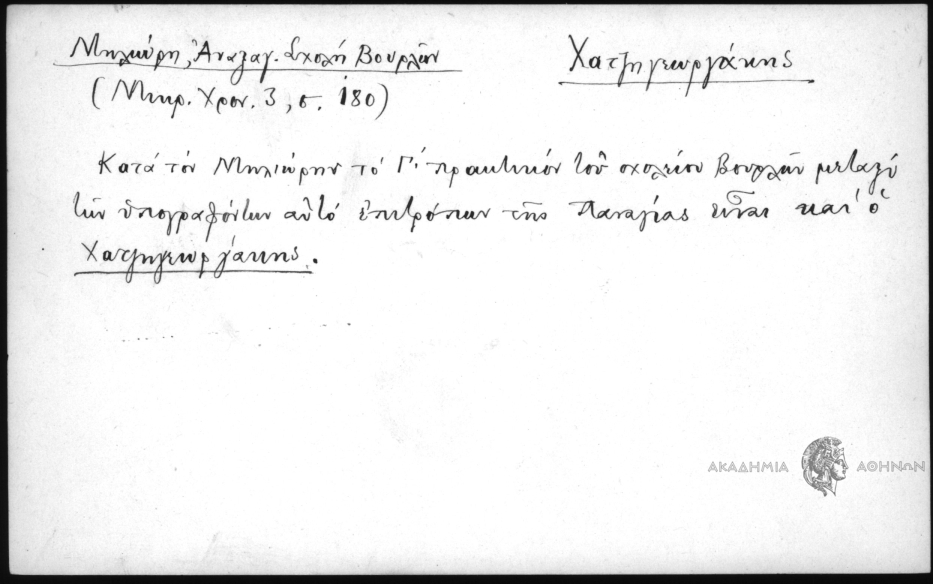 Μηλιώρη, Ἀναξαγ. Σχολή Βουρλῶν
(Μικρ. Χρον. 3, σ. 180)
Χατζηγεωργάκης
Κατά τόν Μηλιώρην τό Γ΄ πρακτικόν τοῦ σχολείου Βουρλῶν μεταξύ
τῶν ὑπογραφόντων αὐτό ἐπιτρόπων τῆς Παναγίας εἶναι καί ὁ
Χατζηγεωργάκης.
ΑΚΑΔΗΜΙΑ ΑΘΗΝΩΝ